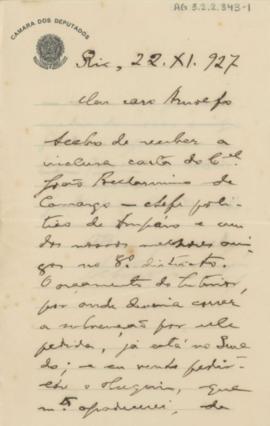 AG 3.2.2.343-1
CAMARA DOS DEPUTADOS
Rio, 22.XI.927
Meu caro Arnolfo
Acabo de receber a
inclusa carta do Cel
João Belarmino de
Camargo — chefe poli-
tico de Amparo e um
dos nossos melhores ami-
gos no 8º districto.
O orçamento do Interior,
por onde deveria correr
a subvenção por elle
pedida, já está no Sena-
do; e eu venho pedir-
lhe o obsequio, que
mto agradecerei, de